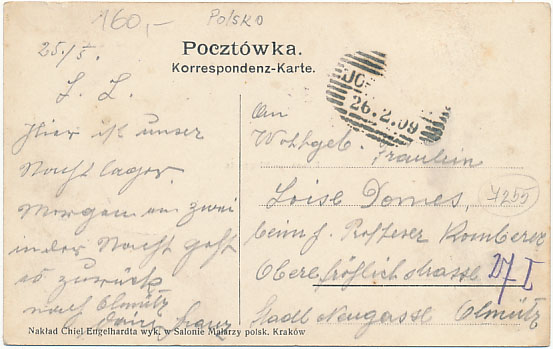 160,-
Polsko
Pocztówka.
Korrespondenz-Karte.
25./5.
L. L.
Hier ist unser
Nachtlager
Morgen um zwei
in der Nacht geht
es zurück
nach Olmütz
Franz
26.2.09
An
Wohlgeb. Fräulein
Loise Domes,
7255
beim H. Professer
Obere fröhlichstrasse 27 I
Stadt Neugasse Olmütz
Nakład Chiel Engelhardta wyk. w Salonie Malarzy polsk. Kraków